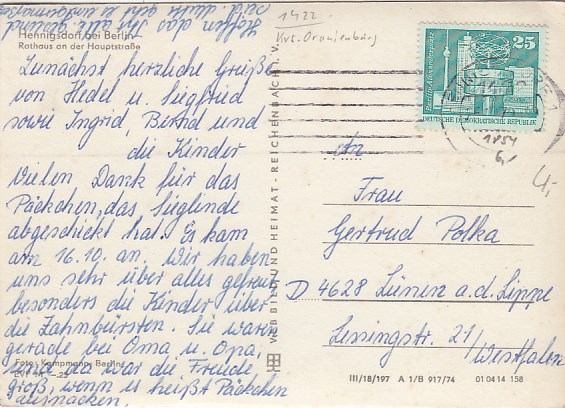 Hennigsdorf bei Berlin
Rathaus an der Hauptstraße
Zunächst herzliche Grüße
von Hedel u. Siegfried
sowie Ingrid, Bernd und
die Kinder
Vielen Dank für das
Päckchen, das Sieglinde
abgeschickt hat. Es kam
am 16.10. an. Wir haben
uns sehr über alles gefreut
besonders die Kinder über
die Zahnbürsten. Sie waren
gerade bei Oma u. Opa,
und da war die Freude
groß, wenn es heißt Päckchen
auspacken.
Hoffen das Ihr alle gesund
seid, durch geht es
Foto: Kampmann, Berlin
EVP
VEB BILD UND HEIMAT · REICHENBACH I. V.
1422
Kvs. Oranienburg
25
Berlin-Alexanderplatz
DEUTSCHE DEMOKRATISCHE REPUBLIK
1854
6,-
4,-
An
Frau
Gertrud Polka
D 4628 Lünen a.d. Lippe
Lessingstr. 21/
Westfalen
III/18/197 A 1/B 917/74 01 04 14 158